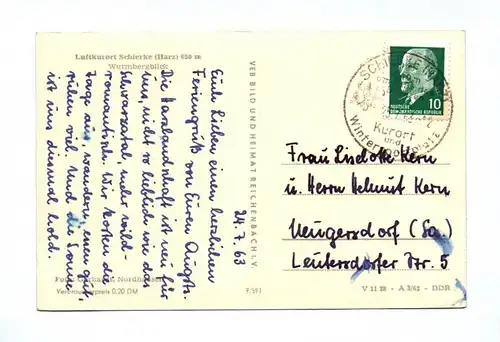 Luftkurort Schierke (Harz) 650 m
Wurmbergblick
24.7.63
Euch Lieben einen herzlichen
Feriengruß von Euren Augsts.
Die Harzlandschaft ist neu für
uns, nicht so lieblich wie das
Schwarzatal, mehr wild-
romantisch. Wir kosten die
Tage aus, wandern, essen gut,
viel! Und die Sonne
ist uns diesmal hold.
VEB BILD UND HEIMAT REICHENBACH I. V.
Verbraucherpreis 0,20 DM
SCHIERKE
Kurort
und
Wintersportplatz
DEUTSCHE
DEMOKRATISCHE REPUBLIK
10
Frau Liselotte Kern
u. Herrn Helmut Kern
Neugersdorf (Sa.)
Leutersdorfer Str. 5
V 11 28 - A 3/62 - DDR